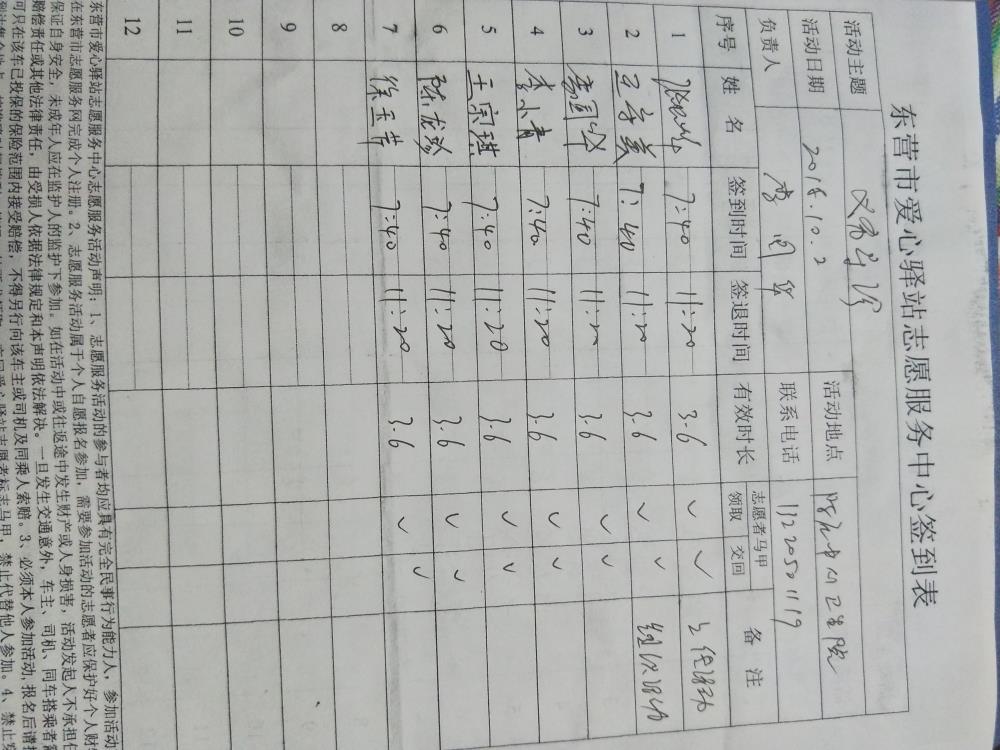 东营市爱心驿站志愿服务中心签到表
活动主题 文明引导 活动地点
活动日期 2018.10.2 联系电话
负责人 李国华
序号 姓名 签到时间 签退时间 有效时长 志愿者马甲 备注
领取 交回
1 7:40 11:20 3.6 ✓ ✓
2 7:40 11:20 3.6 ✓ ✓ 组织活动
3 李国华 7:40 11:20 3.6 ✓ ✓
4 李小青 7:40 11:20 3.6 ✓ ✓
5 王宗琪 7:40 11:20 3.6 ✓ ✓
6 陈龙珍 7:40 11:20 3.6 ✓ ✓
7 徐玉芹 7:40 11:20 3.6 ✓ ✓
8
9
10
11
12
东营市爱心驿站志愿服务中心志愿服务活动声明：1、志愿服务活动的参与者均应具有完全民事行为能力人，参加活动
在东营市志愿服务网完成个人注册。2、志愿服务活动属于个人自愿报名参加，需要参加活动的志愿者应保护好个人财
保证自身安全，未成年人应在监护人的监护下参加。如在活动中或往返途中发生财产或人身损害，活动发起人不承担任
赔偿责任或其他法律责任，由受损人依据法律规定和本声明依法解决。一旦发生交通意外，车主、司机、同车搭乘者
可只在该车已投保的保险范围内接受赔偿，不得另行向该车主或司机及同乘人索赔。3、必须本人参加活动，报名后请
爱心驿站志愿者标志马甲，禁止代替他人参加。4、禁止